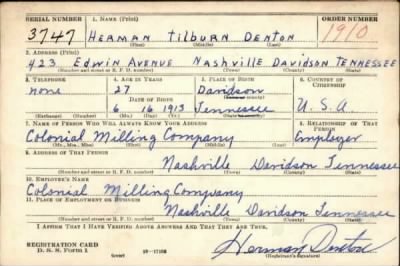 SERIAL NUMBER 1. NAME (Print) ORDER NUMBER
3747 HERMAN TILBURN DENTON 1910
(First) (Middle) (Last)
2. ADDRESS (Print)
423 EDWIN AVENUE NASHVILLE DAVIDSON TENNESSEE
(Number and street or R. F. D. number) (Town) (County) (State)
3. TELEPHONE 4. AGE IN YEARS 5. PLACE OF BIRTH 6. COUNTRY OF CITIZENSHIP
none 27 Davidson
DATE OF BIRTH (Town or county)
6 16 1913 Tennessee U.S.A.
(Exchange) (Number) (Mo.) (Day) (Yr.) (State or country)
7. NAME OF PERSON WHO WILL ALWAYS KNOW YOUR ADDRESS 8. RELATIONSHIP OF THAT PERSON
Colonial Milling Company Employer
(Mr., Mrs., Miss) (First) (Middle) (Last)
9. ADDRESS OF THAT PERSON
Nashville Davidson Tennessee
(Number and street or R. F. D. number) (Town) (County) (State)
10. EMPLOYER'S NAME
Colonial Milling Company
11. PLACE OF EMPLOYMENT OR BUSINESS
Nashville Davidson Tennessee
(Number and street or R. F. D. number) (Town) (County) (State)
I AFFIRM THAT I HAVE VERIFIED ABOVE ANSWERS AND THAT THEY ARE TRUE.
REGISTRATION CARD
D. S. S. Form 1 (over) Herman Denton
(Registrant's signature)